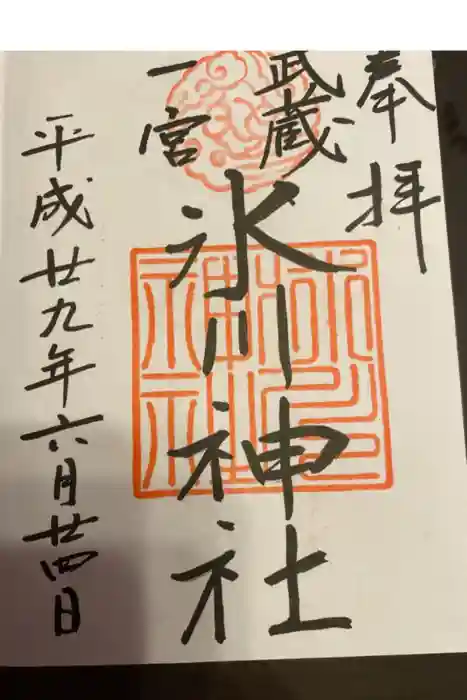 奉拝
武蔵
一宮
氷川神社
平成廿九年六月廿四日